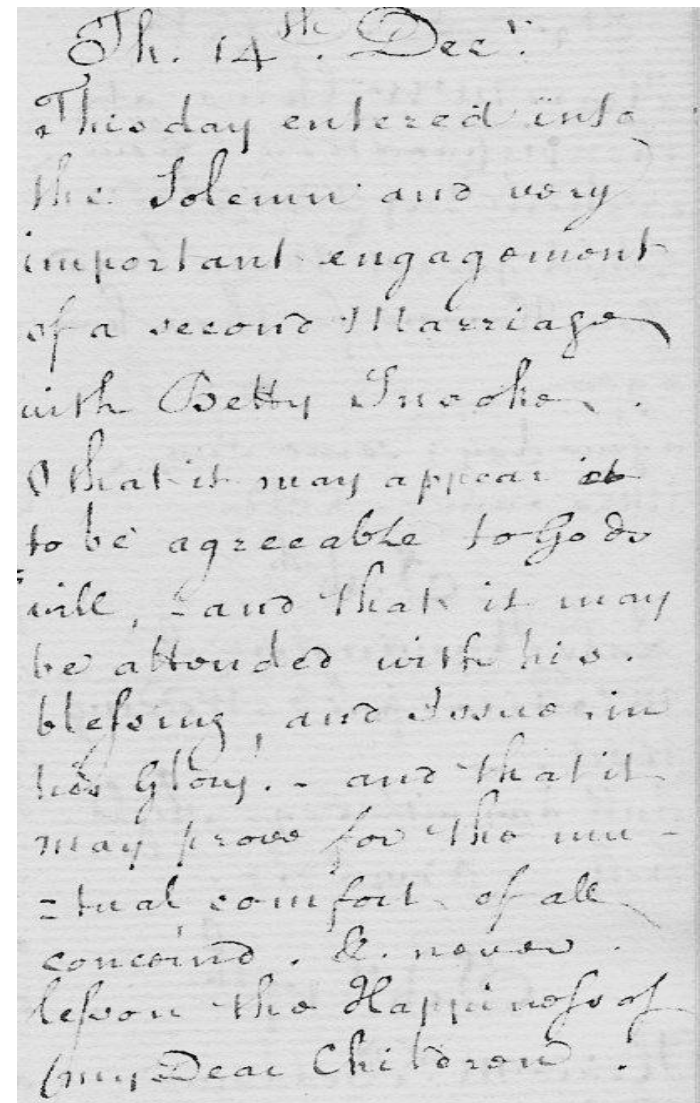 Th. 14th. Decr.
This day entered into
the Solemn and very
important engagement
of a second Marriage
with Betty
O that it may appear
to be agreeable to Gods
will, - and that it may
be attended with his
blessing, and Issue in
his Glory. - and that it
may prove for the mu-
=tual comfort of all
concernd. & never
lesson the Happiness of
my Dear Children.